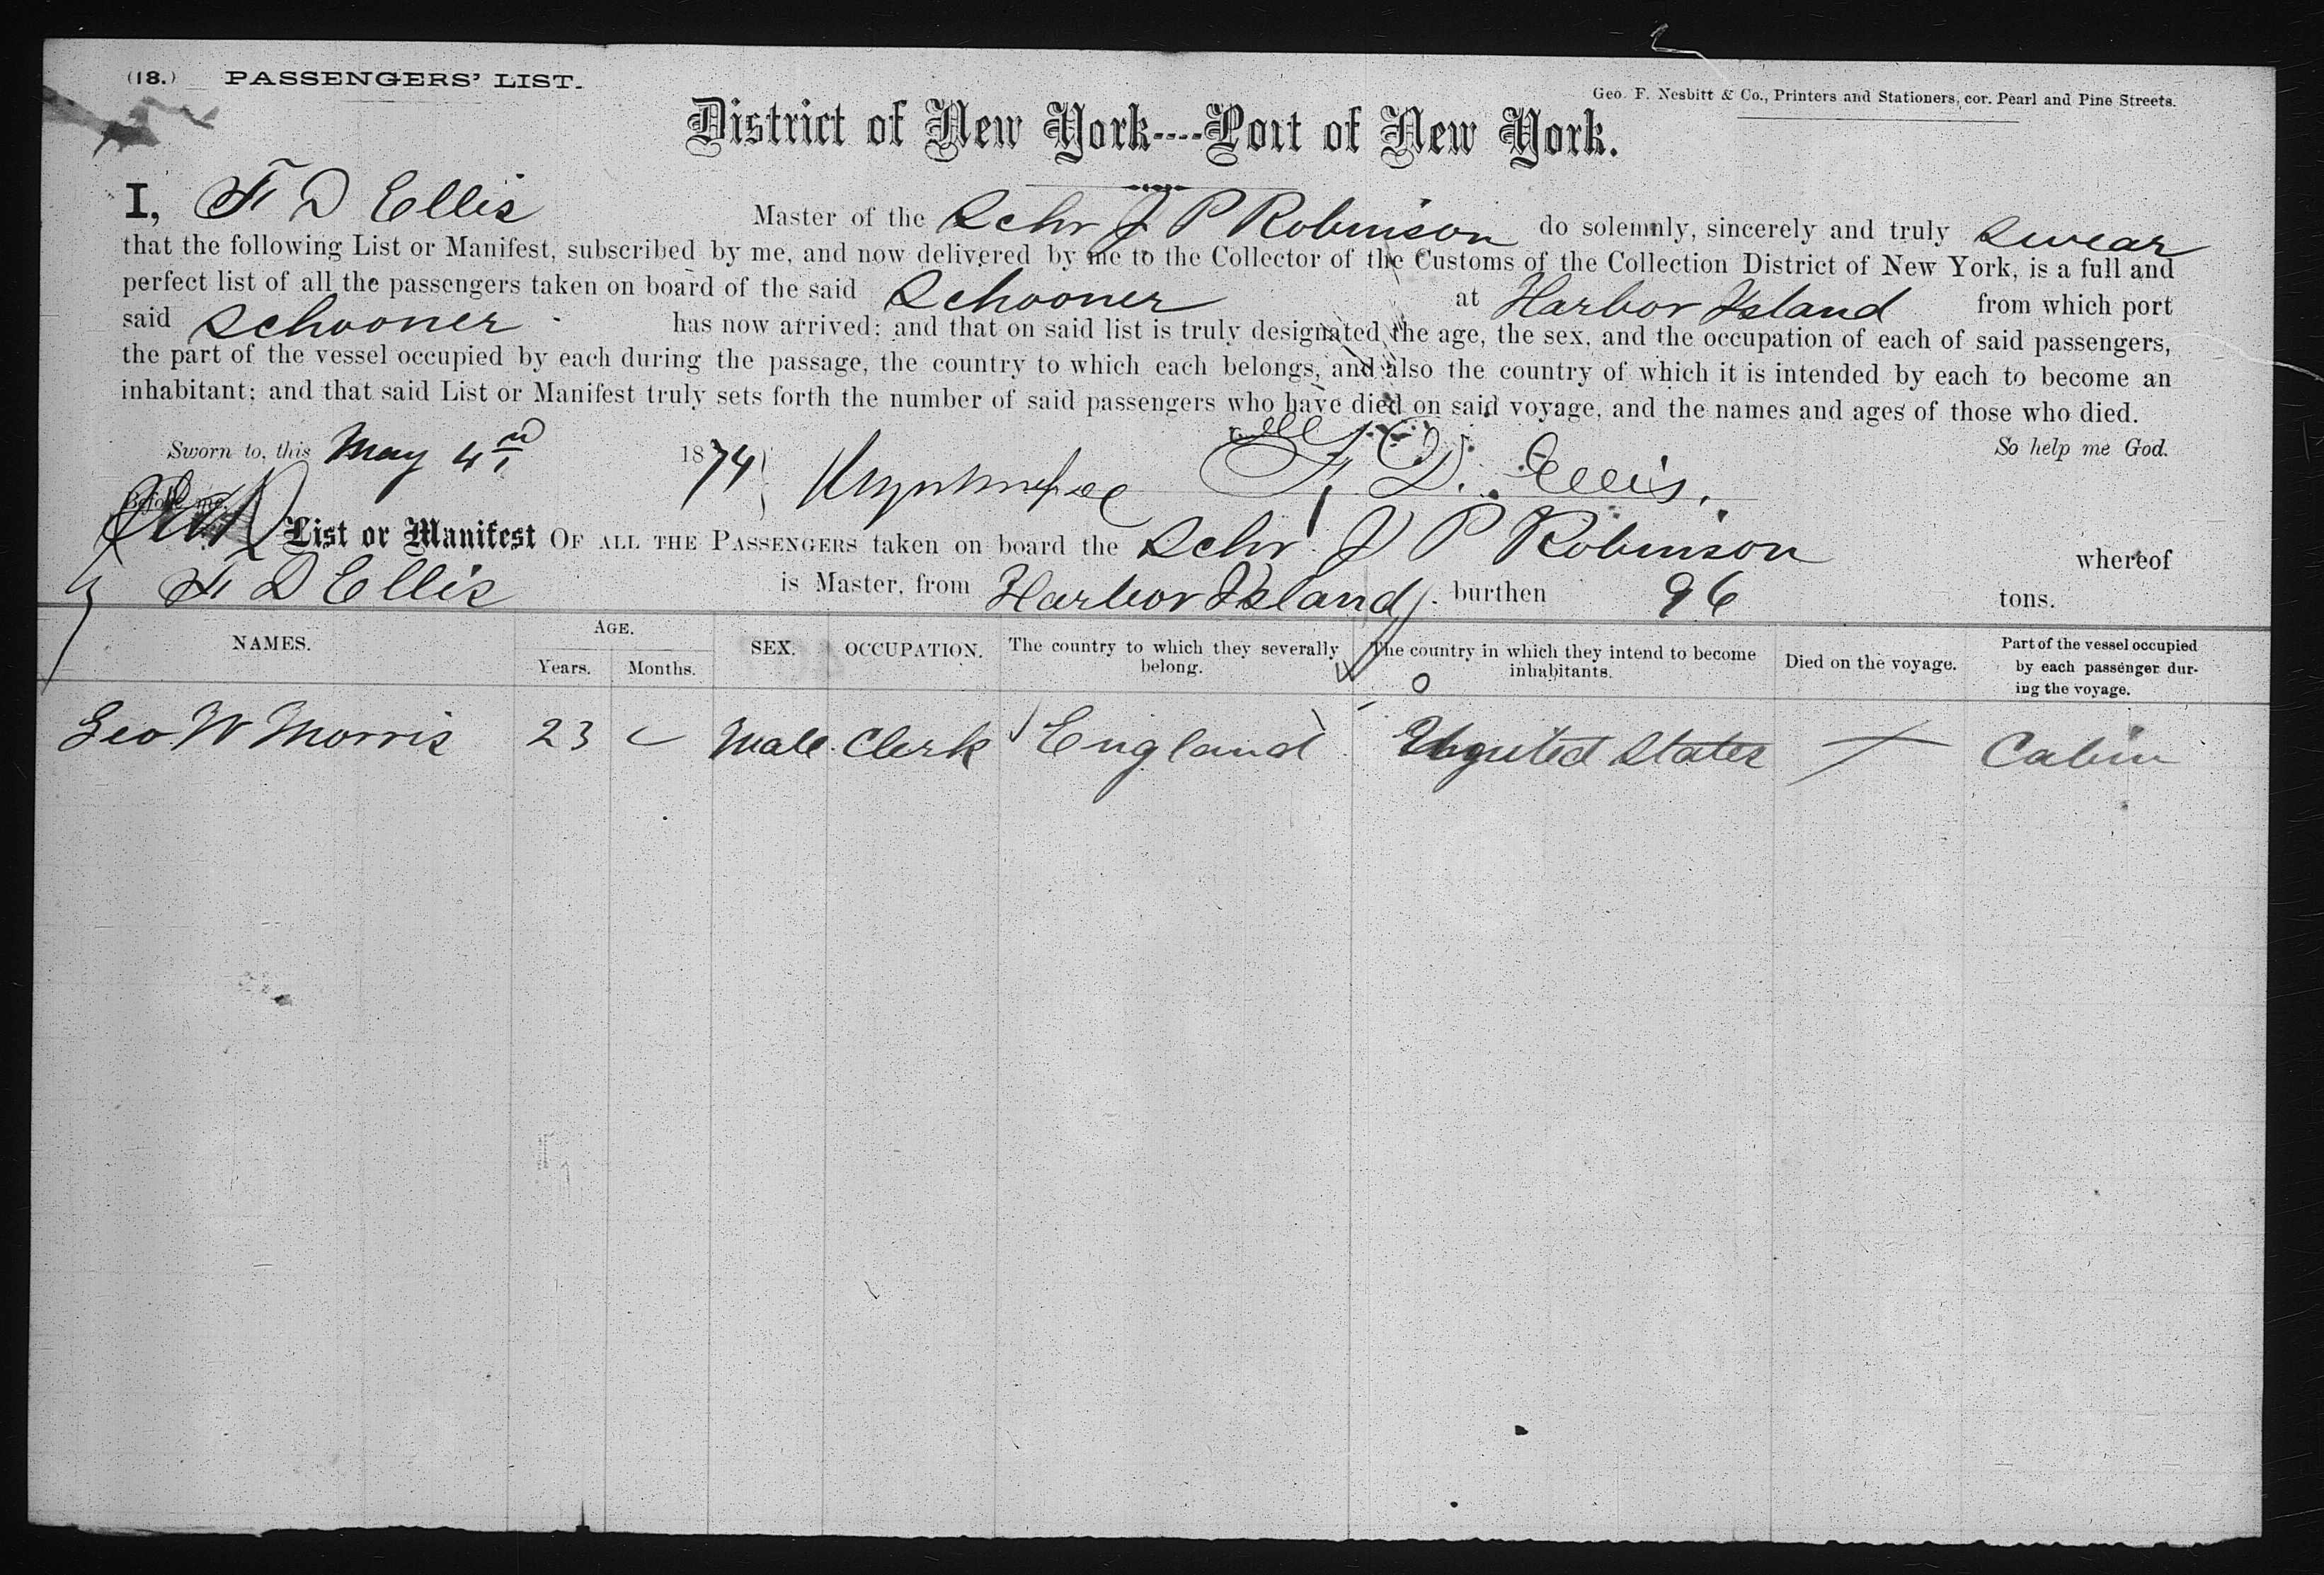 (18.) PASSENGERS' LIST.
Geo. F. Nesbitt & Co., Printers and Stationers, cor. Pearl and Pine Streets.
District of New York----Port of New York.
I, F D Ellis Master of the Schr J P Robinson do solemnly, sincerely and truly swear
that the following List or Manifest, subscribed by me, and now delivered by me to the Collector of the Customs of the Collection District of New York, is a full and
perfect list of all the passengers taken on board of the said Schooner at Harbor Island from which port
said Schooner has now arrived; and that on said list is truly designated the age, the sex, and the occupation of each of said passengers,
the part of the vessel occupied by each during the passage, the country to which each belongs, and also the country of which it is intended by each to become an
inhabitant; and that said List or Manifest truly sets forth the number of said passengers who have died on said voyage, and the names and ages of those who died.
Sworn to, this May 4 1874 So help me God.
F. D. Ellis.
Before me,
List or Manifest OF ALL THE PASSENGERS taken on board the Schr J P Robinson whereof
F D Ellis is Master, from Harbor Island burthen 96 tons.
NAMES. AGE. Years. Months. SEX. OCCUPATION. The country to which they severally belong. The country in which they intend to become inhabitants. Died on the voyage. Part of the vessel occupied by each passenger during the voyage.
Geo W Morris 23 Male Clerk England United States Cabin